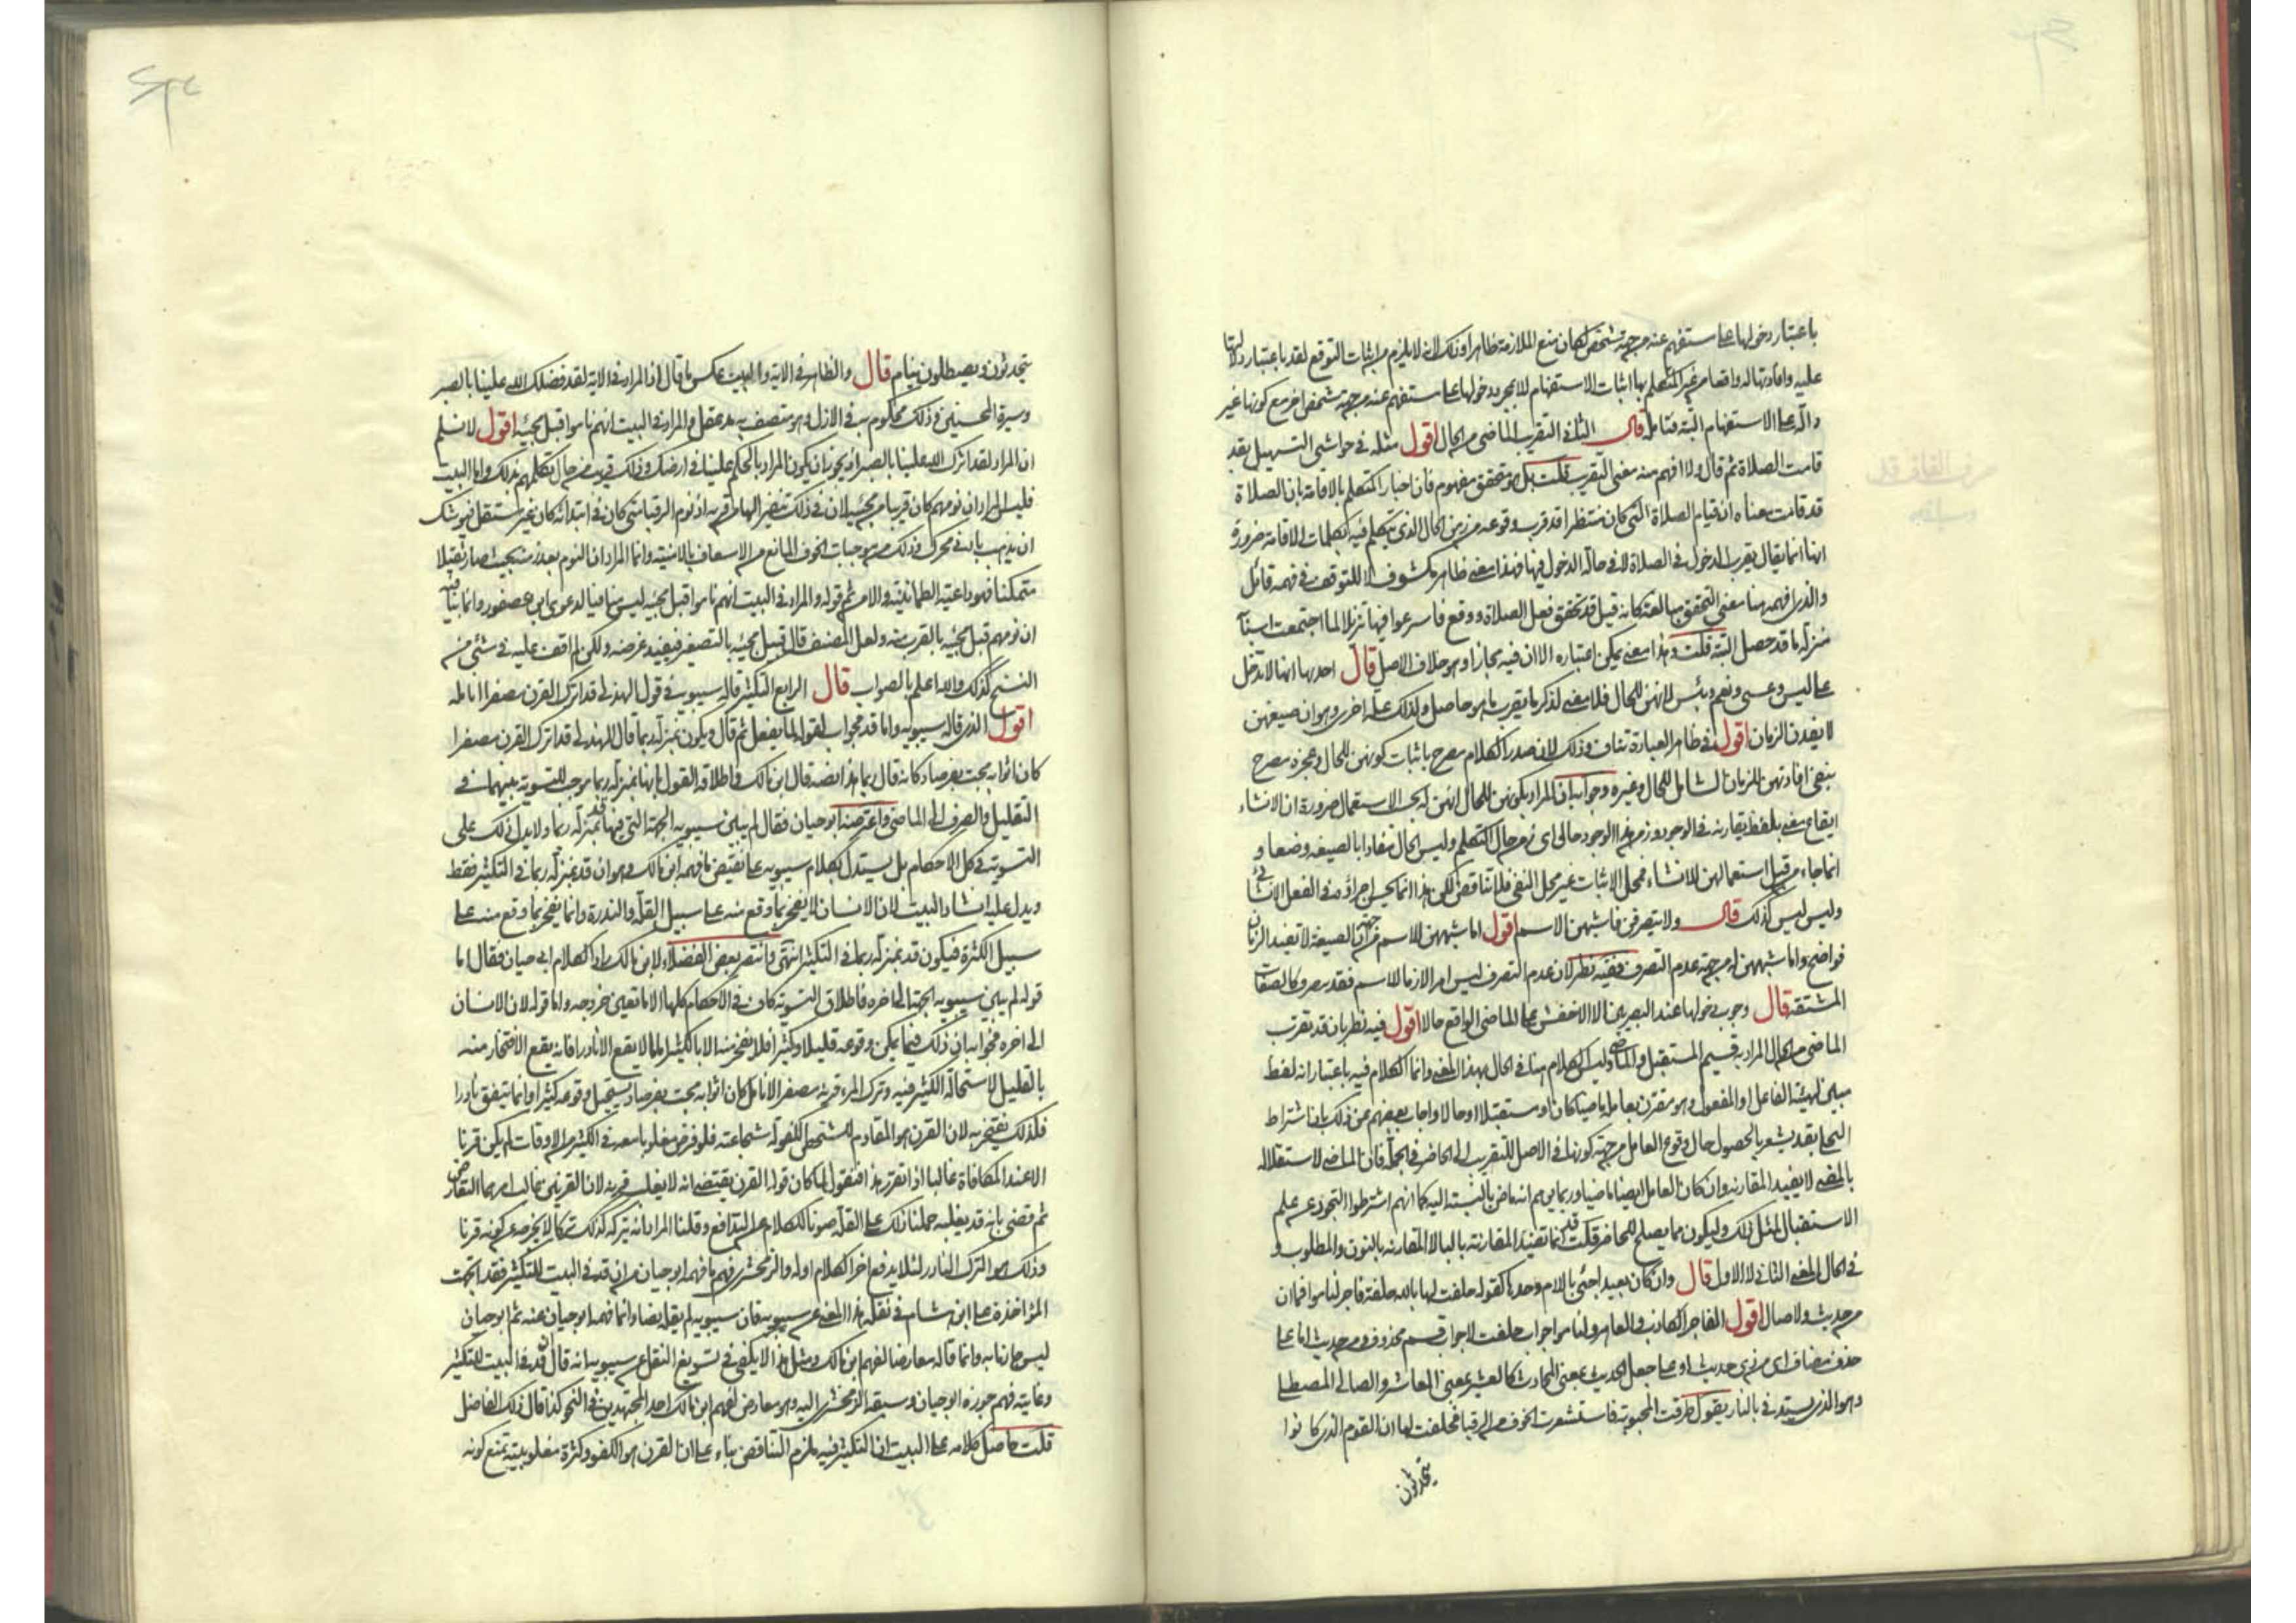 باعتبار دخولها على مستفهم عنه من جهة شخص لكان منع الملازمة ظاهرا وذلك لانه لا يلزم من اثبات التوقع لقد باعتبار دلالتها
عليه وافادتها له واقعا من غير المتكلم بها اثبات الاستفهام لا بمجرد دخولها على مستفهم عنه من جهة شخص اخر مع كونها غير
دالة على الاستفهام البتة فتامل قال الثاني التقريب الماضي من الحال اقول مثله في حواشي التسهيل بقد
قامت الصلاة ثم قال ولا افهم منه معنى التقريب قلت بل هو تحقق مفهوم فان اخبار المتكلم بالاقامة بان الصلاة
قد قامت معناه ان قيام الصلاة التي كان منتظرا قد قرب وقوعه من زمن الحال الذي يتكلم فيه بكلمات الاقامة ضرورة
انها انما يقال بقرب الدخول في الصلاة لا في حالة الدخول فيها فهذا معنى ظاهر مكشوف لا للتوقف في فهمه قائل
والذي افهمه هنا معنى التحقق مبالغة كانه قيل قد تحقق فعل الصلاة ووقع فاسرعوا فيها تنزيلا لما اجتمعت اسبابه
منزلة ما قد حصل البتة قلت وهذا معنى يمكن اعتباره الا ان فيه مجازا وهو خلاف الاصل قال احدها انها لا تدخل
على ليس وعسى ونعم وبئس لانهن للحال فلا معنى لذكر ما يقرب ما هو حاصل ولذلك علة اخرى وهو ان صيغهن
لا يفدن الزمان اقول في ظاهر العبارة تناف وذلك لان صدر الكلام مصرح باثبات كونهن للحال وعجزه مصرح
بنفي افادتهن للزمان الشامل للحال وغيره وجوابه ان المراد بكونهن للحال انهن له بحسب الاستعمال ضرورة ان الانشاء
ايقاع معنى بلفظ يقارنه في الوجود وزمن هذا الوجود حالي اي زمن حال المتكلم وليس الحال مفادا بالصيغة وضعا و
انما جاء من قبل استعمالهن للانشاء فمحل الاثبات غير محل النفي فلا تناقض لكن هذا انما يحسن اجراؤه في الفعل الانشائي
وليس ليس كذلك قال ولا يتصرفن فاشبهن الاسم اقول اما شبههن للاسم من جهة ان الصيغة لا تفيد الزمان
فواضح واما شبههن له من جهة عدم التصرف ففيه نظر لان عدم التصرف ليس امرا لازما للاسم فقد يتصرف كالصفات
المشتقة قال وجوب دخولها عند البصريين الا الاخفش على الماضي الواقع حالا اقول فيه نظر بان قد تقرب
الماضي من الحال المراد به قسيم المستقبل والماضي وليس الكلام هنا في الحال بهذا المعنى وانما الكلام فيه باعتبار انه لفظ
مبين لهيئة الفاعل او المفعول وهو مقترن بعامله ماضيا كان او مستقبلا او حالا واجاب بعضهم عن ذلك بان اشتراط
التحلي بقد يشعر بالحصول حال وقوع العامل من جهة كونها في الاصل للتقريب الى الحاضر في الجملة فان الماضي لاستقلاله
بالمضي لا يفيد المقارنة وان كان العامل ايضا ماضيا وربما يوهم انه ماض بالنسبة اليه كما انهم اشترطوا التجرد عن علم
الاستقبال لمثل ذلك وليكون مما يصلح للحاضر قلت قد انما تفيد المقاربة بالبا لا المقارنة بالنون والمطلوب
في الحال المعنى الثاني لا الاول قال وان كان بعيدا جئ باللام وحدها كقوله حلفت لها بالله حلفة فاجر لناموا فما ان
من حديث ولا صال اقول الفاجر الكاذب والعاهر ولناموا جواب حلفت لا جواب قسم محذوف ومن حديث اما على
حذف مضاف اي من ذي حديث او على جعل الحديث بمعنى المحادث كالعشير بمعنى المعاشر والصالي المصطلي
وهو الذي يستدفئ بالنار يقول طرقت المحبوبة فاستشعرت الخوف من الرقبا فحلفت لها ان القوم الذي كانوا
يتحدثون
يتحدثون ويصطلون نيام قال والظاهر في الاية والبيت عكس ما قال اذ المراد في الاية لقد فضلك الله علينا بالصبر
وسيرة المحسنين وذلك محكوم به في الازل وهو متصف به مذ عقل والمراد في البيت انهم ناموا قبل مجيئه اقول لا نسلم
ان المراد لقد اثرك الله علينا بالصبر اذ يجوز ان يكون المراد بالحكم علينا في ارضك وذلك قريب من حال تكلمهم بذلك واما البيت
فليس المراد ان نومهم كان قريبا من مجيئه لان في ذلك تنفير الها من قربه اذ نوم الرقبا متى كان في ابتدائه كان غير مستقل فيوشك
ان يذهب بادنى محرك وذلك من موجبات الخوف المانع من الاسعاف بالامنية وانما المراد ان النوم بعد زمنه بحيث صار ثقيلا
متمكنا فهو داعية الطمانينة والامن ثم قوله والمراد في البيت انهم ناموا قبل مجيئه ليس منافيا لدعوى ابن عصفور وانما ينافيه
ان نومهم قبل مجيئه بالقرب منه ولعل المصنف قال قبيل مجيئه بالتصغير فيفيد غرضه ولكن لم اقف عليه في شئ من
النسخ كذلك والله اعلم بالصواب قال الرابع التكثير قاله سيبويه في قول الهذلي قد اترك القرن مصفرا انامله
اقول الذي قاله سيبويه واما قد فجواب لقوله لما يفعل ثم قال ويكون بمنزلة ربما قال الهذلي قد اترك القرن مصفرا
كان اثوابه مجت بفرصاد كانه قال ربما هذا نصه قال ابن مالك واطلاقه القول بانها بمنزلة ربما موجب للتسوية بينهما في
التقليل والصرف الى الماضي واعترضه ابو حيان فقال لم يبين سيبويه الجهة التي فيها قد بمنزلة ربما ولا يدل ذلك على
التسوية في كل الاحكام بل يستدل بكلام سيبويه على نقيض ما فهمه ابن مالك وهو ان قد بمنزلة ربما في التكثير فقط
ويدل عليه انشاد البيت لان الانسان لا يفخر بما وقع منه على سبيل القلة والندرة وانما يفخر بما وقع منه على
سبيل الكثرة فيكون قد بمنزلة ربما في التكثير انتهى وانتصر بعض الفضلاء لابن مالك رادا كلام ابي حيان فقال اما
قوله لم يبين سيبويه الجهة الى اخره فاطلاق التسوية كاف في الاحكام كلها الا ما تعين خروجه واما قوله لان الانسان
الى اخره فجوابه ان ذلك فيما يمكن وقوعه قليلا وكثيرا فلا يفخر منه الا بالكثير اما ما لا يقع الا نادرا فانه يقع الافتخار منه
بالقليل لاستحالة الكثير فيه وترك المرء قرنه مصفر الانامل كان اثوابه مجت بفرصاد يستحيل وقوعه كثيرا وانما يتفق نادرا
فلذلك يفتخر به لان القرن هو المقاوم للشخص الكفو له شجاعته فلو فرض مغلوبا معه في الكثير من الاوقات لم يكن قرنا
الا عند المكافاة غالبا اذا تقرر هذا فنقول لما كان قوله القرن يقتضي انه لا يغلب قرنه لان القرنين غالب امرهما التعارض
ثم قضى بانه قد يغلبه حملنا ذلك على القلة صونا للكلام عن التدافع وقلنا المراد انه يتركه كذلك تركا لا يخرجه عن كونه قرنا
وذلك هو الترك النادر لئلا يدفع اخر الكلام اوله والزمخشري فهم ما فهمه ابو حيان من ان قد في البيت للتكثير فقد اتجهت
المؤاخذة على ابن هشام في نقله هذا المعنى عن سيبويه فان سيبويه لم يقله نصا وانما فهمه ابو حيان عنه ثم ابو حيان
ليس جازما به وانما قاله معارضا لفهم ابن مالك ومثل هذا لا يكفي في تسويغ النقل عن سيبويه انه قال ان قد في البيت للتكثير
وغايته فهم جوزه ابو حيان وسبقه الزمخشري اليه وهو معارض لفهم ابن مالك احد المجتهدين في النحو كذا قال ذلك الفاضل
قلت حاصل كلامه على البيت ان التكثير فيه ملزم التناقض بناء على ان القرن هو الكفو وكثرة مغلوبيته تمنع كونه